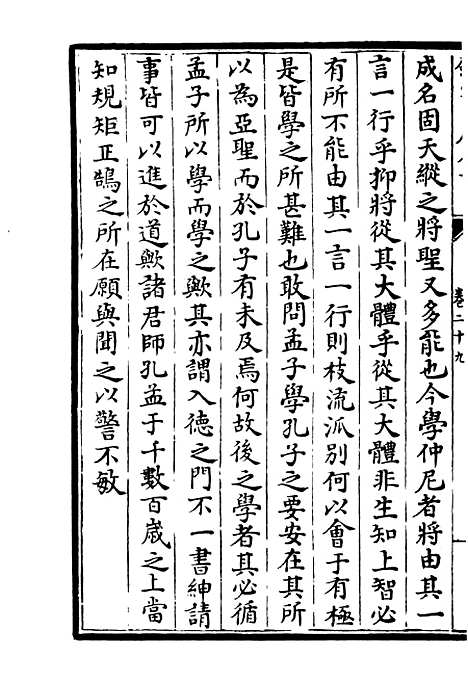 卷二十九
成名固天縱之將聖又多能也今學仲尼者將由其一
言一行乎抑將從其大體乎從其大體非生知上智必
有所不能由其一言一行則枝流派別何以會于有極
是皆學之所甚難也敢問孟子學孔子之要安在其所
以為亞聖而於孔子有未及焉何故後之學者其必循
孟子所以學而學之歟其亦謂入德之門不一書紳請
事皆可以進於道歟諸君師孔孟于千數百歲之上當
知規矩正鵠之所在願與聞之以警不敏